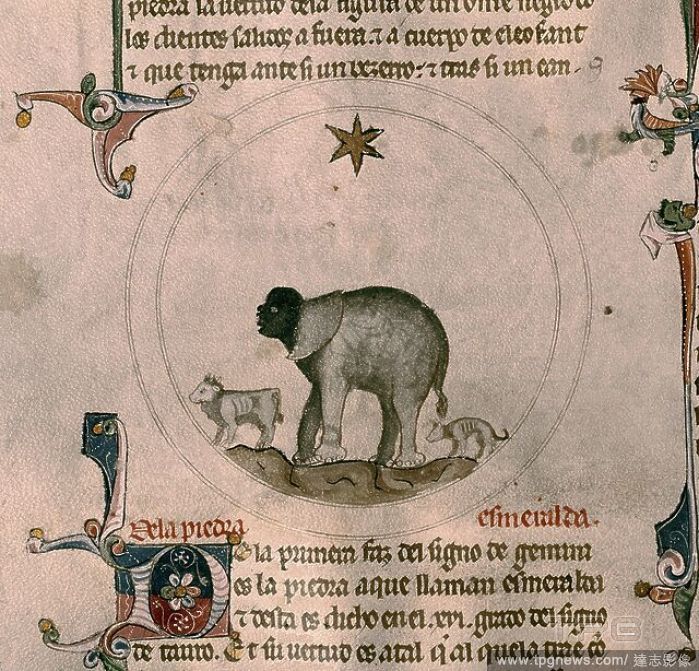 piedra la uertud dela figura de un ome negro co
los dientes saluos a fuera. τ a cuerpo de eleofant
τ que tenga ante si un bezerro: τ tras si un can.
Dela piedra esmeralda.
E la primera faz del signo de gemini
es la piedra aque llaman esmeralda
τ desta es dicho en el .xvi. grado del signo
de tauro. Et su uertud es atal q̃ al que la trae cō
www.tpgnews.com/ 達志影像